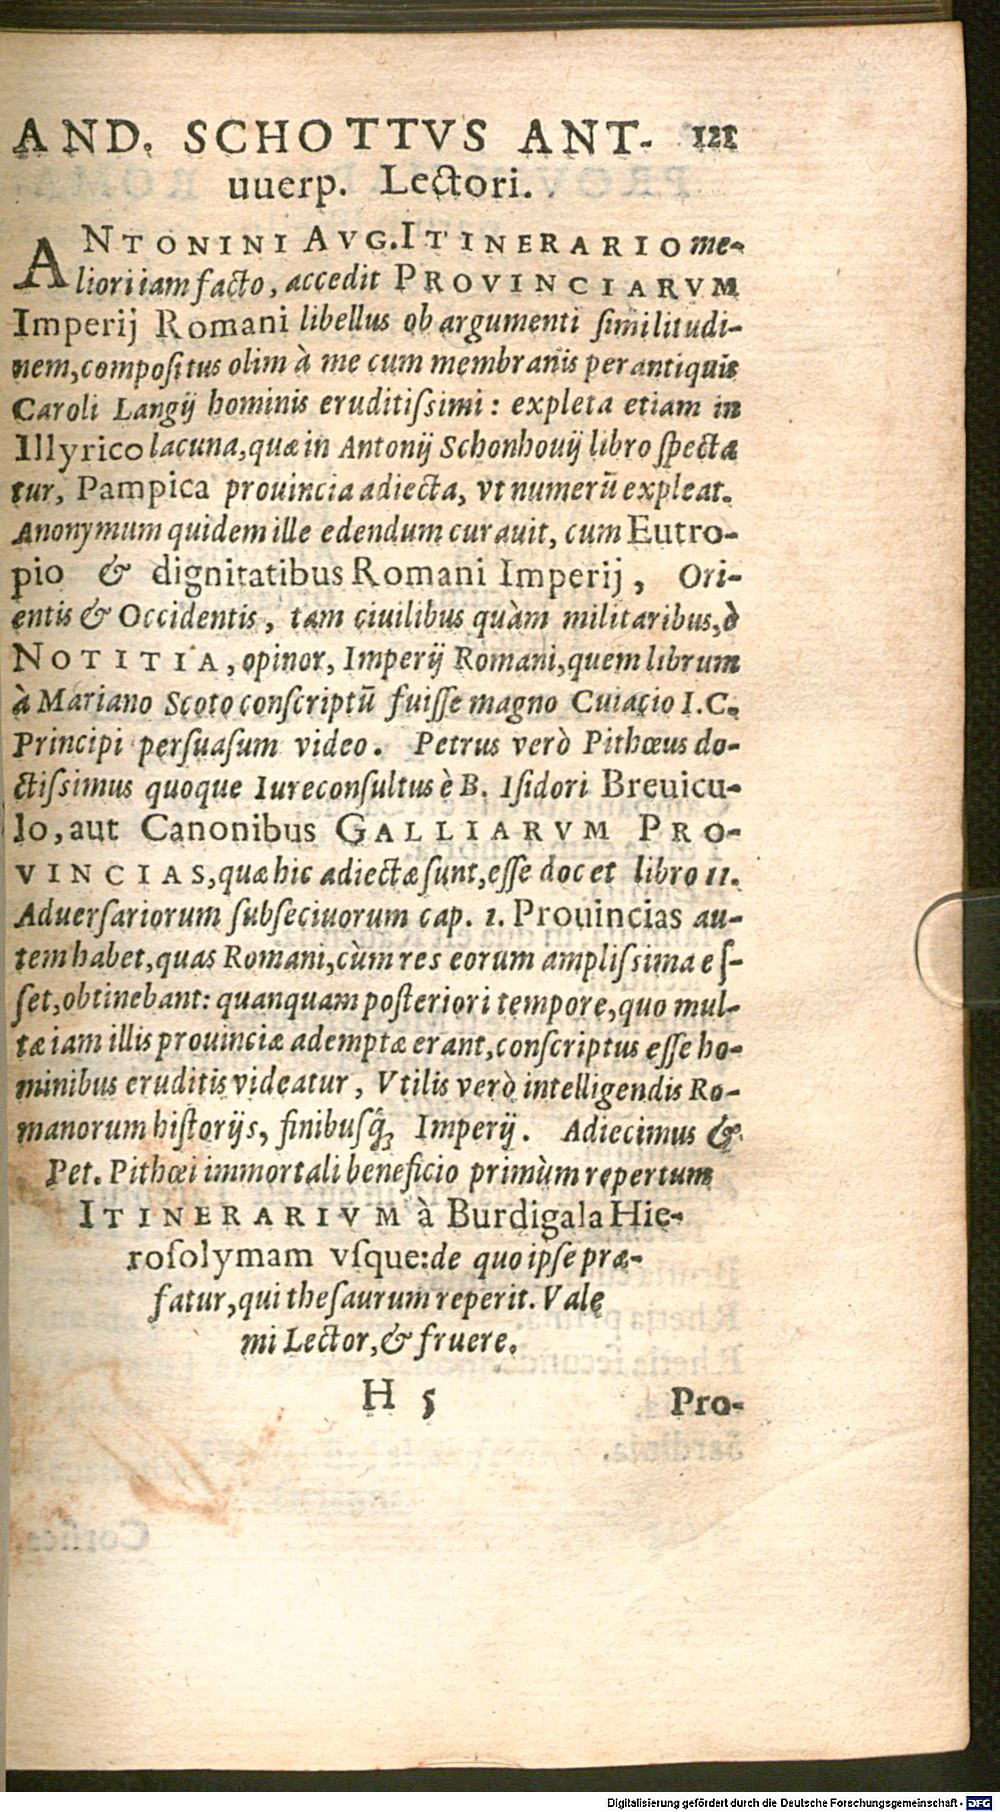 AND. SCHOTTVS ANT- 121
uuerp. Lectori.
ANTONINI AVG. ITINERARIO me-
liori iam facto, accedit PROVINCIARVM
Imperij Romani libellus ob argumenti similitudi-
nem, compositus olim à me cum membranis perantiquis
Caroli Langij hominis eruditissimi: expleta etiam in
Illyrico lacuna, quæ in Antonij Schonhouij libro specta
tur, Pampica prouincia adiecta, vt numerũ expleat.
Anonymum quidem ille edendum curauit, cum Eutro-
pio & dignitatibus Romani Imperij, Ori-
entis & Occidentis, tam ciuilibus quàm militaribus, è
NOTITIA, opinor, Imperij Romani, quem librum
à Mariano Scoto conscriptũ fuisse magno Cuiacio I.C.
Principi persuasum video. Petrus verò Pithœus do-
ctissimus quoque Iureconsultus è B. Isidori Breuicu-
lo, aut Canonibus GALLIARVM PRO-
VINCIAS, quæ hic adiectæ sunt, esse docet libro 11.
Aduersariorum subseciuorum cap. 1. Prouincias au-
tem habet, quas Romani, cùm res eorum amplissima es-
set, obtinebant: quanquam posteriori tempore, quo mul-
tæ iam illis prouinciæ ademptæ erant, conscriptus esse ho-
minibus eruditis videatur, Vtilis verò intelligendis Ro-
manorum historijs, finibusq́; Imperij. Adiecimus &
Pet. Pithœi immortali beneficio primùm repertum
ITINERARIVM à Burdigala Hie-
rosolymam vsque: de quo ipse præ-
fatur, qui thesaurum reperit. Vale
mi Lector, & fruere.
H 5 Pro-
Digitalisierung gefördert durch die Deutsche Forschungsgemeinschaft - DFG